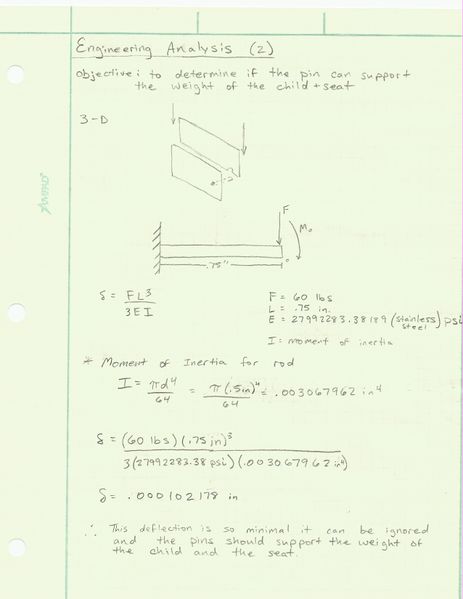 Engineering Analysis (2)
Objective: to determine if the pin can support
the weight of the child + seat
3-D
F
M₀
.75"
δ = FL³ / 3EI
F = 60 lbs
L = .75 in.
E = 27992283.38189 (stainless steel) psi
I = moment of inertia
* Moment of Inertia for rod
I = πd⁴ / 64 = π(.5in)⁴ / 64 = .003067962 in⁴
δ = (60 lbs)(.75 in)³
3(27992283.38 psi)(.003067962 in⁴)
δ = .000102178 in
∴ This deflection is so minimal it can be ignored
and the pins should support the weight of
the child and the seat.